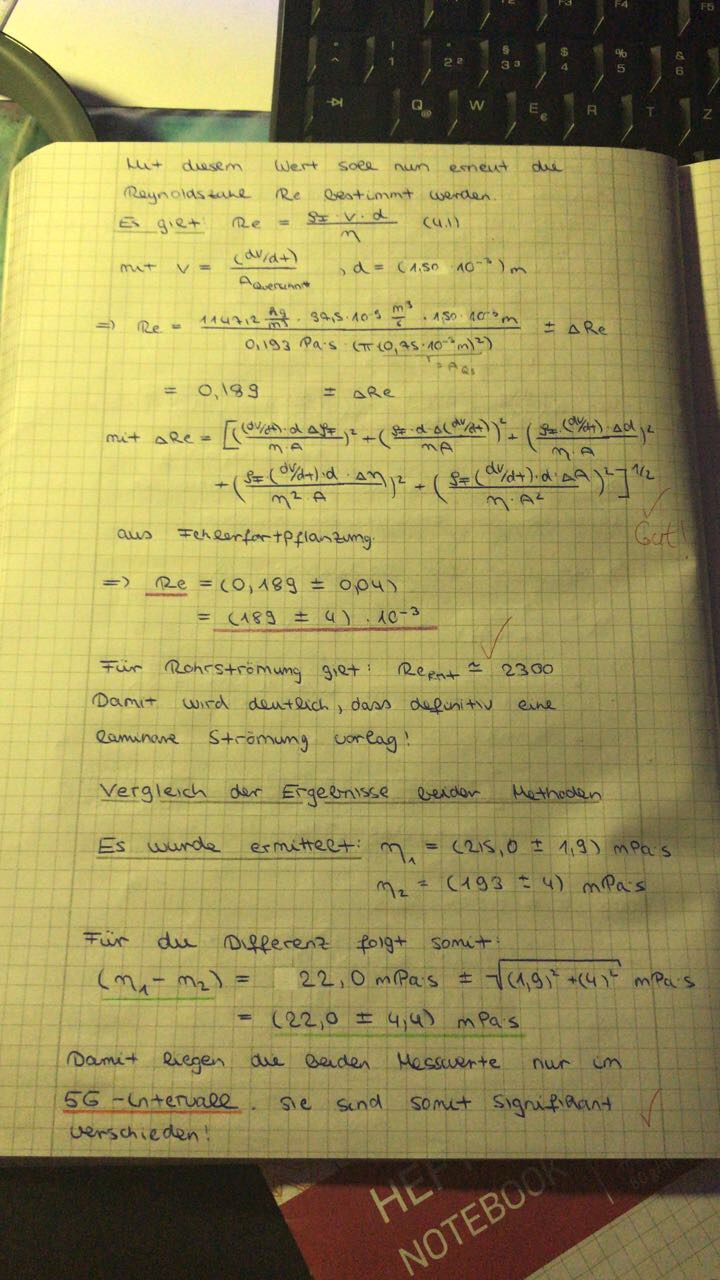 F3 F4 F5
° ^ ! 1 " 2 ² § 3 ³ $ 4 % 5 & 6
Q @ W E € R T Z
Mit diesem Wert soll nun erneut die
Reynoldszahl Re bestimmt werden.
Es gilt: Re = ρ_Fl · v · d / η (4.1)
mit v = (dV/dt) / A_Querschnitt , d = (1,50 · 10⁻³) m
=> Re = 1147,2 kg/m³ · 37,5 · 10⁻⁹ m³/s · 1,50 · 10⁻³ m / 0,193 Pa·s (π (0,75 · 10⁻³ m)²) ± ΔRe
= A_QS
= 0,189 ± ΔRe
mit ΔRe = [((dV/dt) · d Δρ_Fl / η A)² + (ρ_Fl · d · Δ(dV/dt) / η A)² + (ρ_Fl · (dV/dt) · Δd / η · A)²
+ (ρ_Fl (dV/dt) · d · Δη / η² A)² + (ρ_Fl (dV/dt) · d · ΔA / η · A²)²]^1/2
Gut!
aus Fehlerfortpflanzung.
=> Re = (0,189 ± 0,04)
= (189 ± 4) · 10⁻³
Für Rohrströmung gilt: Re_krit ≈ 2300
Damit wird deutlich, dass definitiv eine
laminare Strömung vorlag!
Vergleich der Ergebnisse beider Methoden
Es wurde ermittelt: η₁ = (215,0 ± 1,9) mPa·s
η₂ = (193 ± 4) mPa·s
Für die Differenz folgt somit:
(η₁ - η₂) = 22,0 mPa·s ± √((1,9)² + (4)²) mPa·s
= (22,0 ± 4,4) mPa·s
Damit liegen die beiden Messwerte nur im
5σ-Intervall. Sie sind somit signifikant
verschieden!
NOTEBOOK